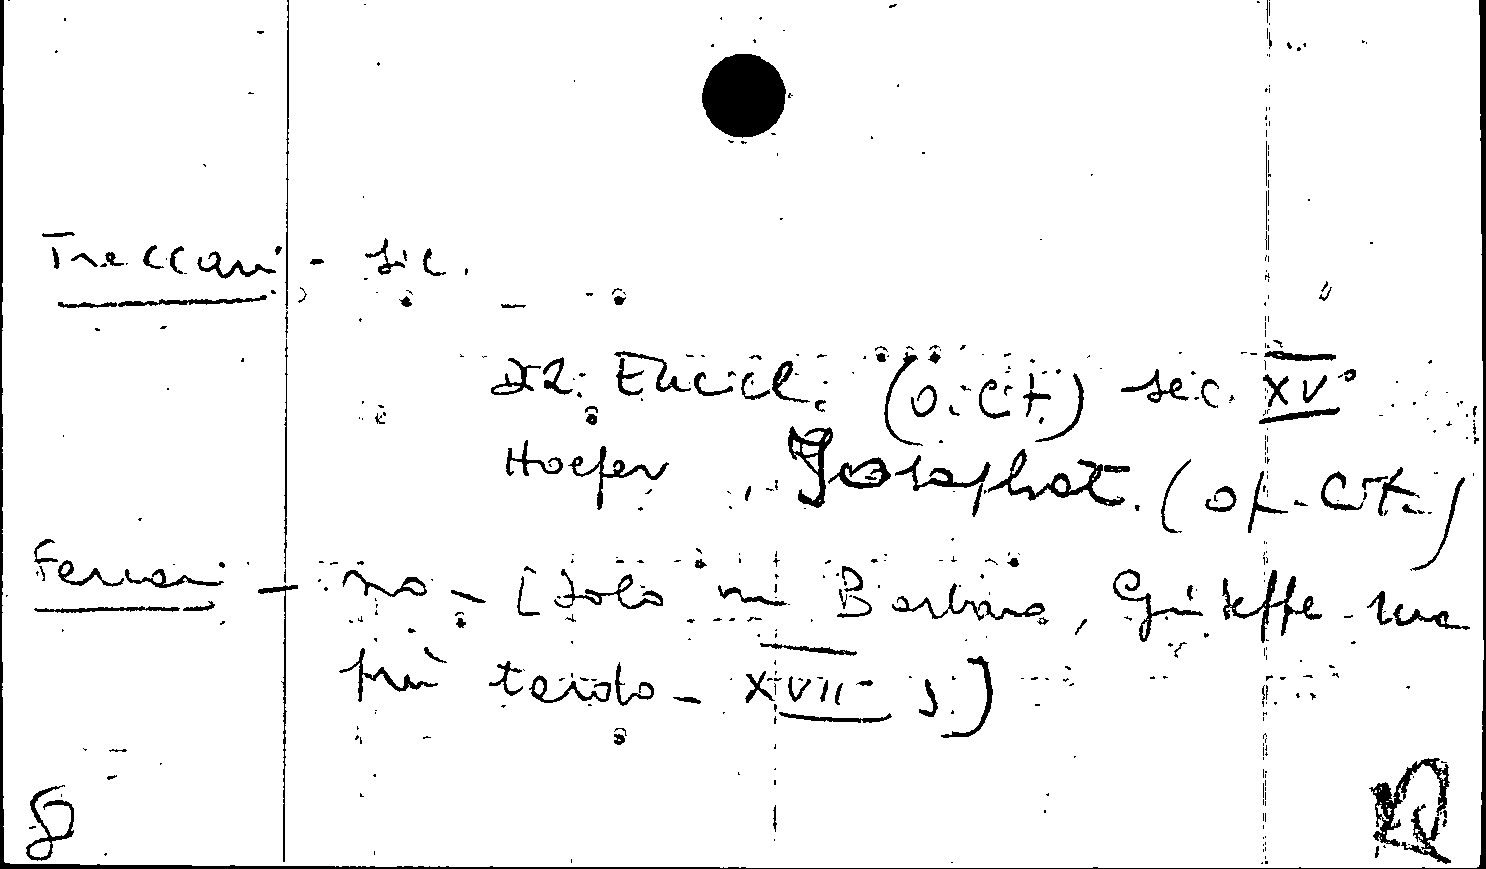 Treccani - sic.
Encicl. (o. cit.) sec. XV°
Hoefer, Josaphat. (op. cit.)
Ferrari - no - [solo un Barbaro, Giuseppe ma
più tardo - XVII s.]